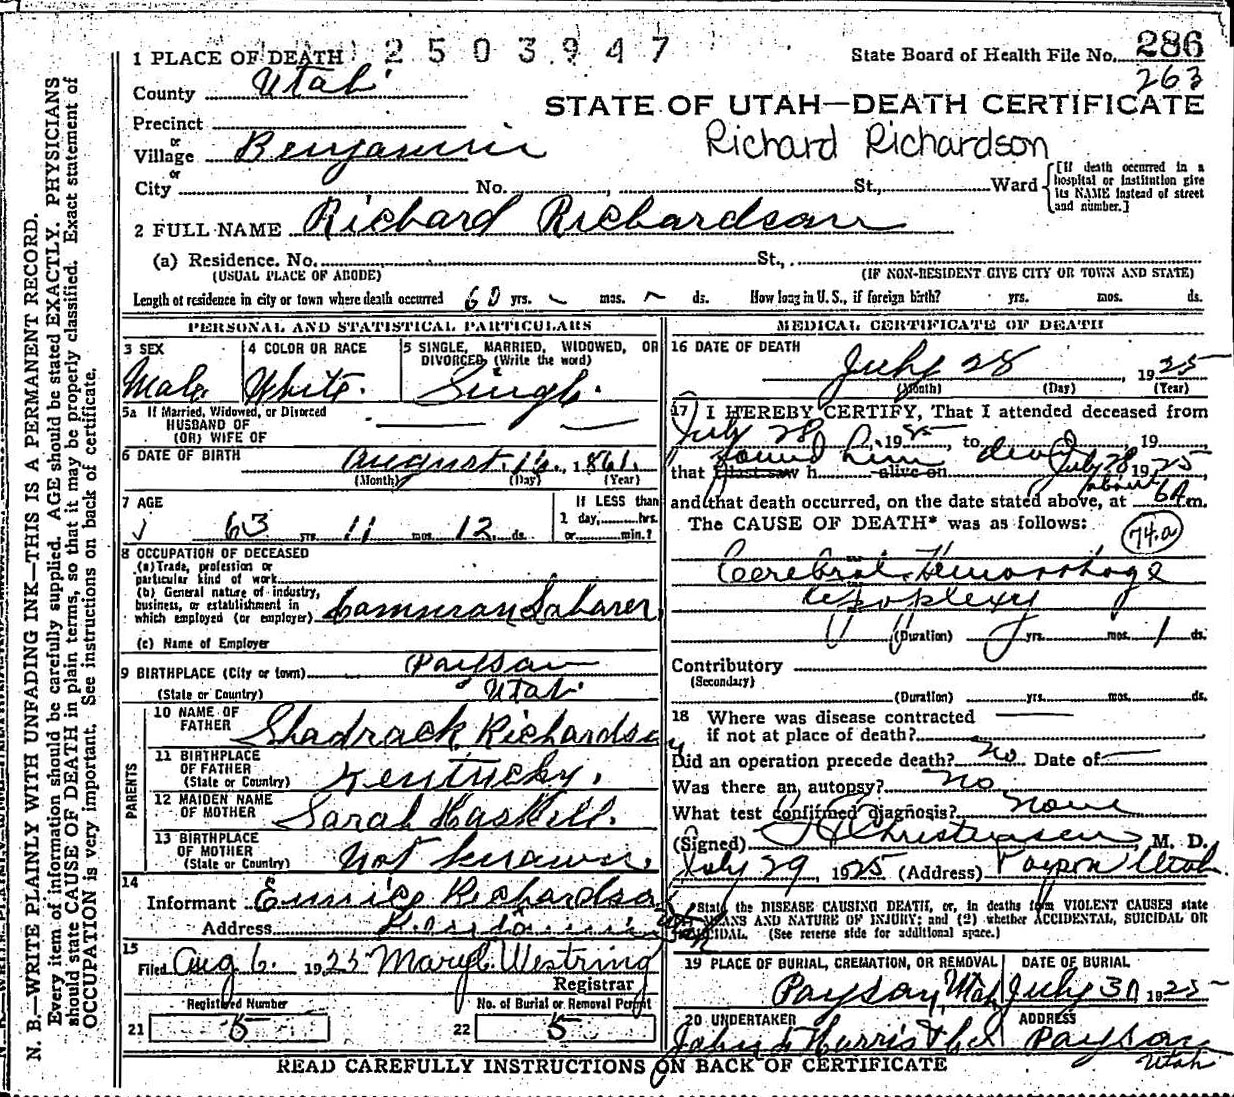 1 PLACE OF DEATH 2503947 State Board of Health File No. 286
263
County Utah
STATE OF UTAH—DEATH CERTIFICATE
Precinct
or
Village Benjamin
Richard Richardson
or
City No. , St., Ward
[If death occurred in a hospital or institution give its NAME instead of street and number.]
2 FULL NAME Richard Richardson
(a) Residence. No. St.,
(USUAL PLACE OF ABODE) (IF NON-RESIDENT GIVE CITY OR TOWN AND STATE)
Length of residence in city or town where death occurred 60 yrs. mos. ds. How long in U. S., if foreign birth? yrs. mos. ds.
PERSONAL AND STATISTICAL PARTICULARS
3 SEX
Male
4 COLOR OR RACE
White.
5 SINGLE, MARRIED, WIDOWED, OR
DIVORCED, (Write the word)
Single.
5a If Married, Widowed, or Divorced
HUSBAND OF
(OR) WIFE OF
6 DATE OF BIRTH August 16, 1861.
(Month) (Day) (Year)
7 AGE
If LESS than
1 day, hrs.
63 yrs. 11 mos. 12 ds. or min.?
8 OCCUPATION OF DECEASED
(a) Trade, profession or
particular kind of work
(b) General nature of industry,
business, or establishment in
which employed (or employer)
(c) Name of Employer
9 BIRTHPLACE (City or town) Payson
(State or Country) Utah
PARENTS
10 NAME OF
FATHER Shadrack Richardson
11 BIRTHPLACE
OF FATHER
(State or Country) Kentucky.
12 MAIDEN NAME
OF MOTHER Sarah Haskell.
13 BIRTHPLACE
OF MOTHER
(State or Country) Not known.
14
Informant Eunice Richardson
Address Utah
15
Filed Aug 6. 1925 Mary C. Westring
Registrar
Registered Number No. of Burial or Removal Permit
21 5 22 5
MEDICAL CERTIFICATE OF DEATH
16 DATE OF DEATH
July 28, 1925
(Month) (Day) (Year)
17 I HEREBY CERTIFY, That I attended deceased from
July 28, 1925 to , 19
found him dead July 28
that I last saw h alive on 1925
about
and that death occurred, on the date stated above, at 6 A m.
The CAUSE OF DEATH* was as follows:
74a
Cerebral Hemorrhage
Apoplexy
(Duration) yrs. mos. 1 ds.
Contributory
(Secondary)
(Duration) yrs. mos. ds.
18 Where was disease contracted
if not at place of death?
Did an operation precede death? No Date of
Was there an autopsy? No
What test confirmed diagnosis? None
(Signed) Christensen, M. D.
July 29, 1925 (Address) Payson Utah
*State the DISEASE CAUSING DEATH, or, in deaths from VIOLENT CAUSES state
MEANS AND NATURE OF INJURY; and (2) whether ACCIDENTAL, SUICIDAL OR
HOMICIDAL. (See reverse side for additional space.)
19 PLACE OF BURIAL, CREMATION, OR REMOVAL
Payson, Utah
DATE OF BURIAL
July 30, 1925
20 UNDERTAKER
ADDRESS
Payson
Utah
READ CAREFULLY INSTRUCTIONS ON BACK OF CERTIFICATE
N. B.—WRITE PLAINLY WITH UNFADING INK—THIS IS A PERMANENT RECORD.
Every item of information should be carefully supplied. AGE should be stated EXACTLY. PHYSICIANS
should state CAUSE OF DEATH in plain terms, so that it may be properly classified. Exact statement of
OCCUPATION is very important. See instructions on back of certificate.